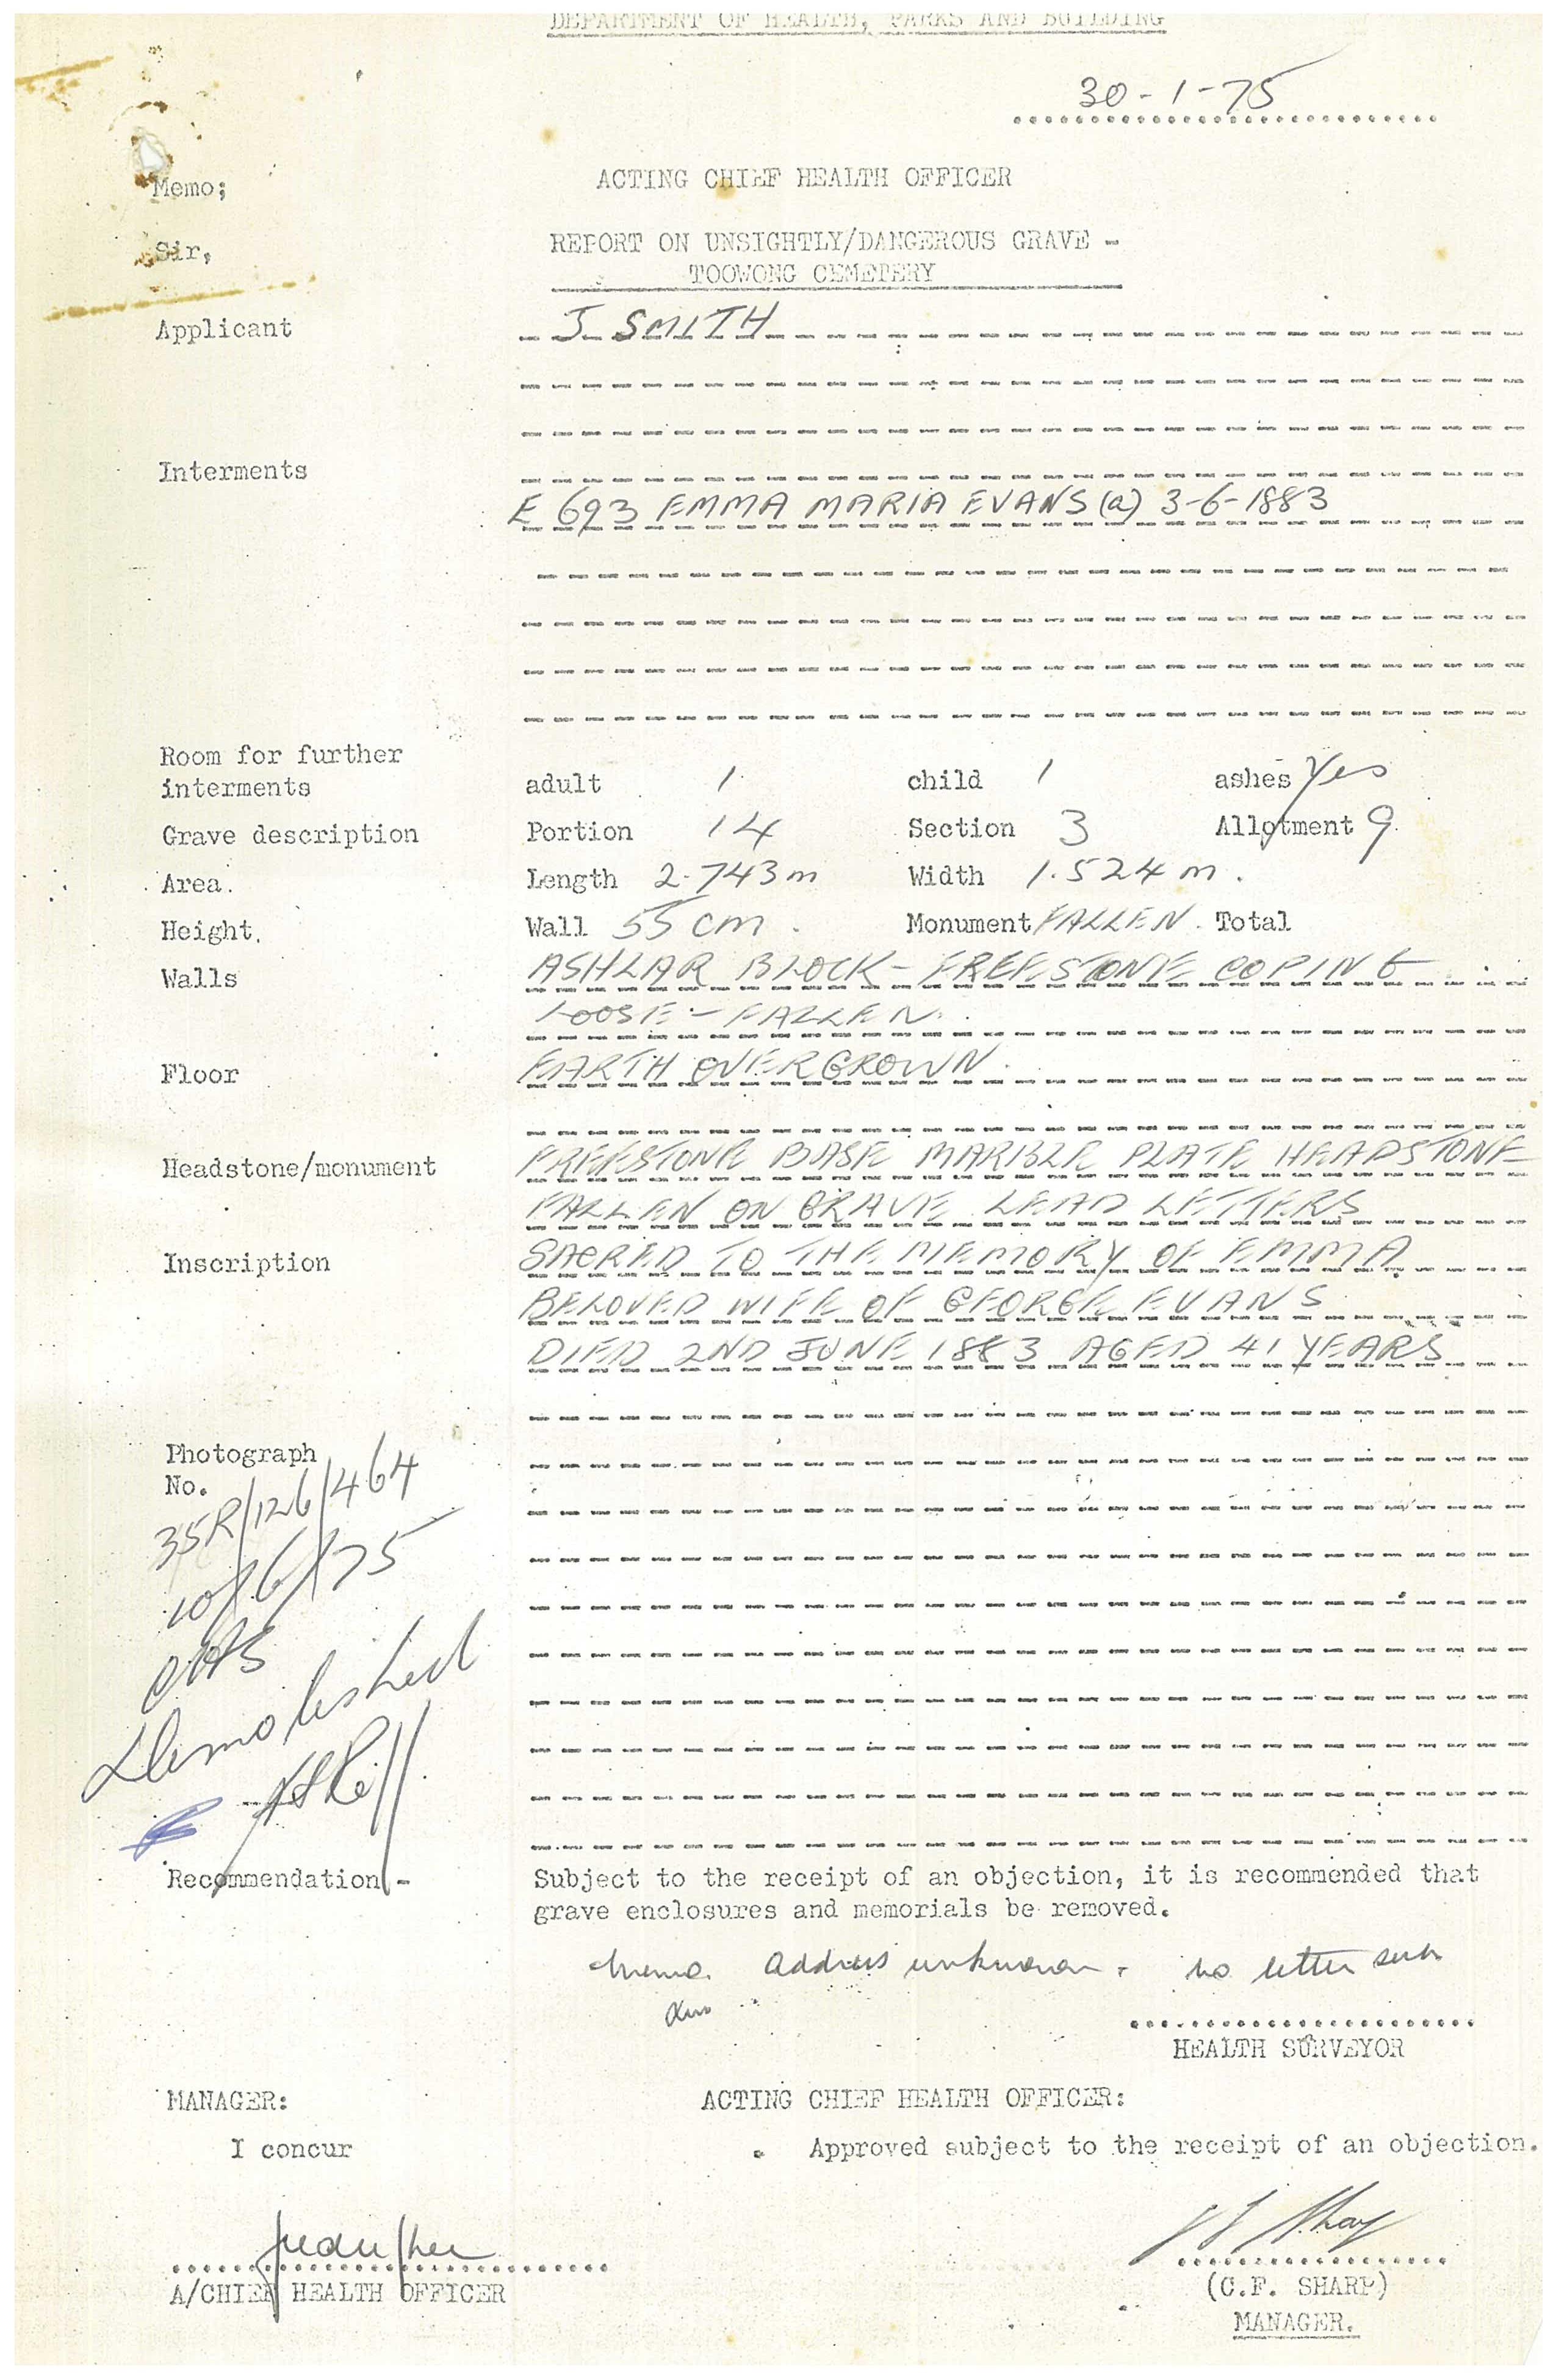 DEPARTMENT OF HEALTH, PARKS AND BUILDING
30-1-75
Memo;
ACTING CHIEF HEALTH OFFICER
Sir,
REPORT ON UNSIGHTLY/DANGEROUS GRAVE -
TOOWONG CEMETERY
Applicant J SMITH
Interments
E 693 EMMA MARIA EVANS (a) 3-6-1883
Room for further
interments adult 1 child 1 ashes Yes
Grave description Portion 14 Section 3 Allotment 9
Area. Length 2.743m Width 1.524m.
Height. Wall 55 cm. Monument FALLEN. Total
Walls ASHLAR BLOCK - FREESTONE COPING
LOOSE - FALLEN.
Floor EARTH OVERGROWN.
Headstone/monument FREESTONE BASE MARBLE PLATE HEADSTONE
FALLEN ON GRAVE LEAD LETTERS
Inscription SACRED TO THE MEMORY OF EMMA
BELOVED WIFE OF GEORGE EVANS
DIED 2ND JUNE 1883 AGED 41 YEARS
Photograph
No.
35R/126/464
10/6/75
Demolished
Recommendation - Subject to the receipt of an objection, it is recommended that
grave enclosures and memorials be removed.
Memo. Address unknown. no letter sent
HEALTH SURVEYOR
MANAGER: ACTING CHIEF HEALTH OFFICER:
I concur . Approved subject to the receipt of an objection.
A/CHIEF HEALTH OFFICER
(C.F. SHARP)
MANAGER.